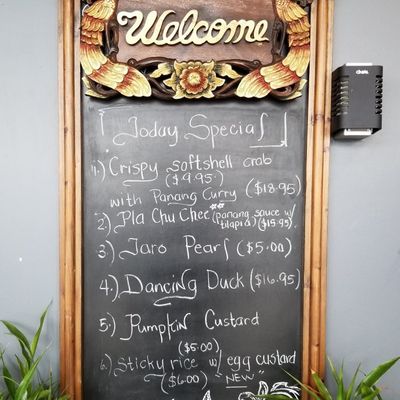 Welcome
Today Special
1.) Crispy softshell crab
($9.95)
with Panang Curry ($18.95)
2.) Pla Chu Chee (panang sauce w/
tilapia) ($15.95)
3.) Taro Pearl ($5.00)
4.) Dancing Duck ($16.95)
5.) Pumpkin Custard
($5.00)
6.) Sticky rice w/ egg custard
($6.00) "NEW"